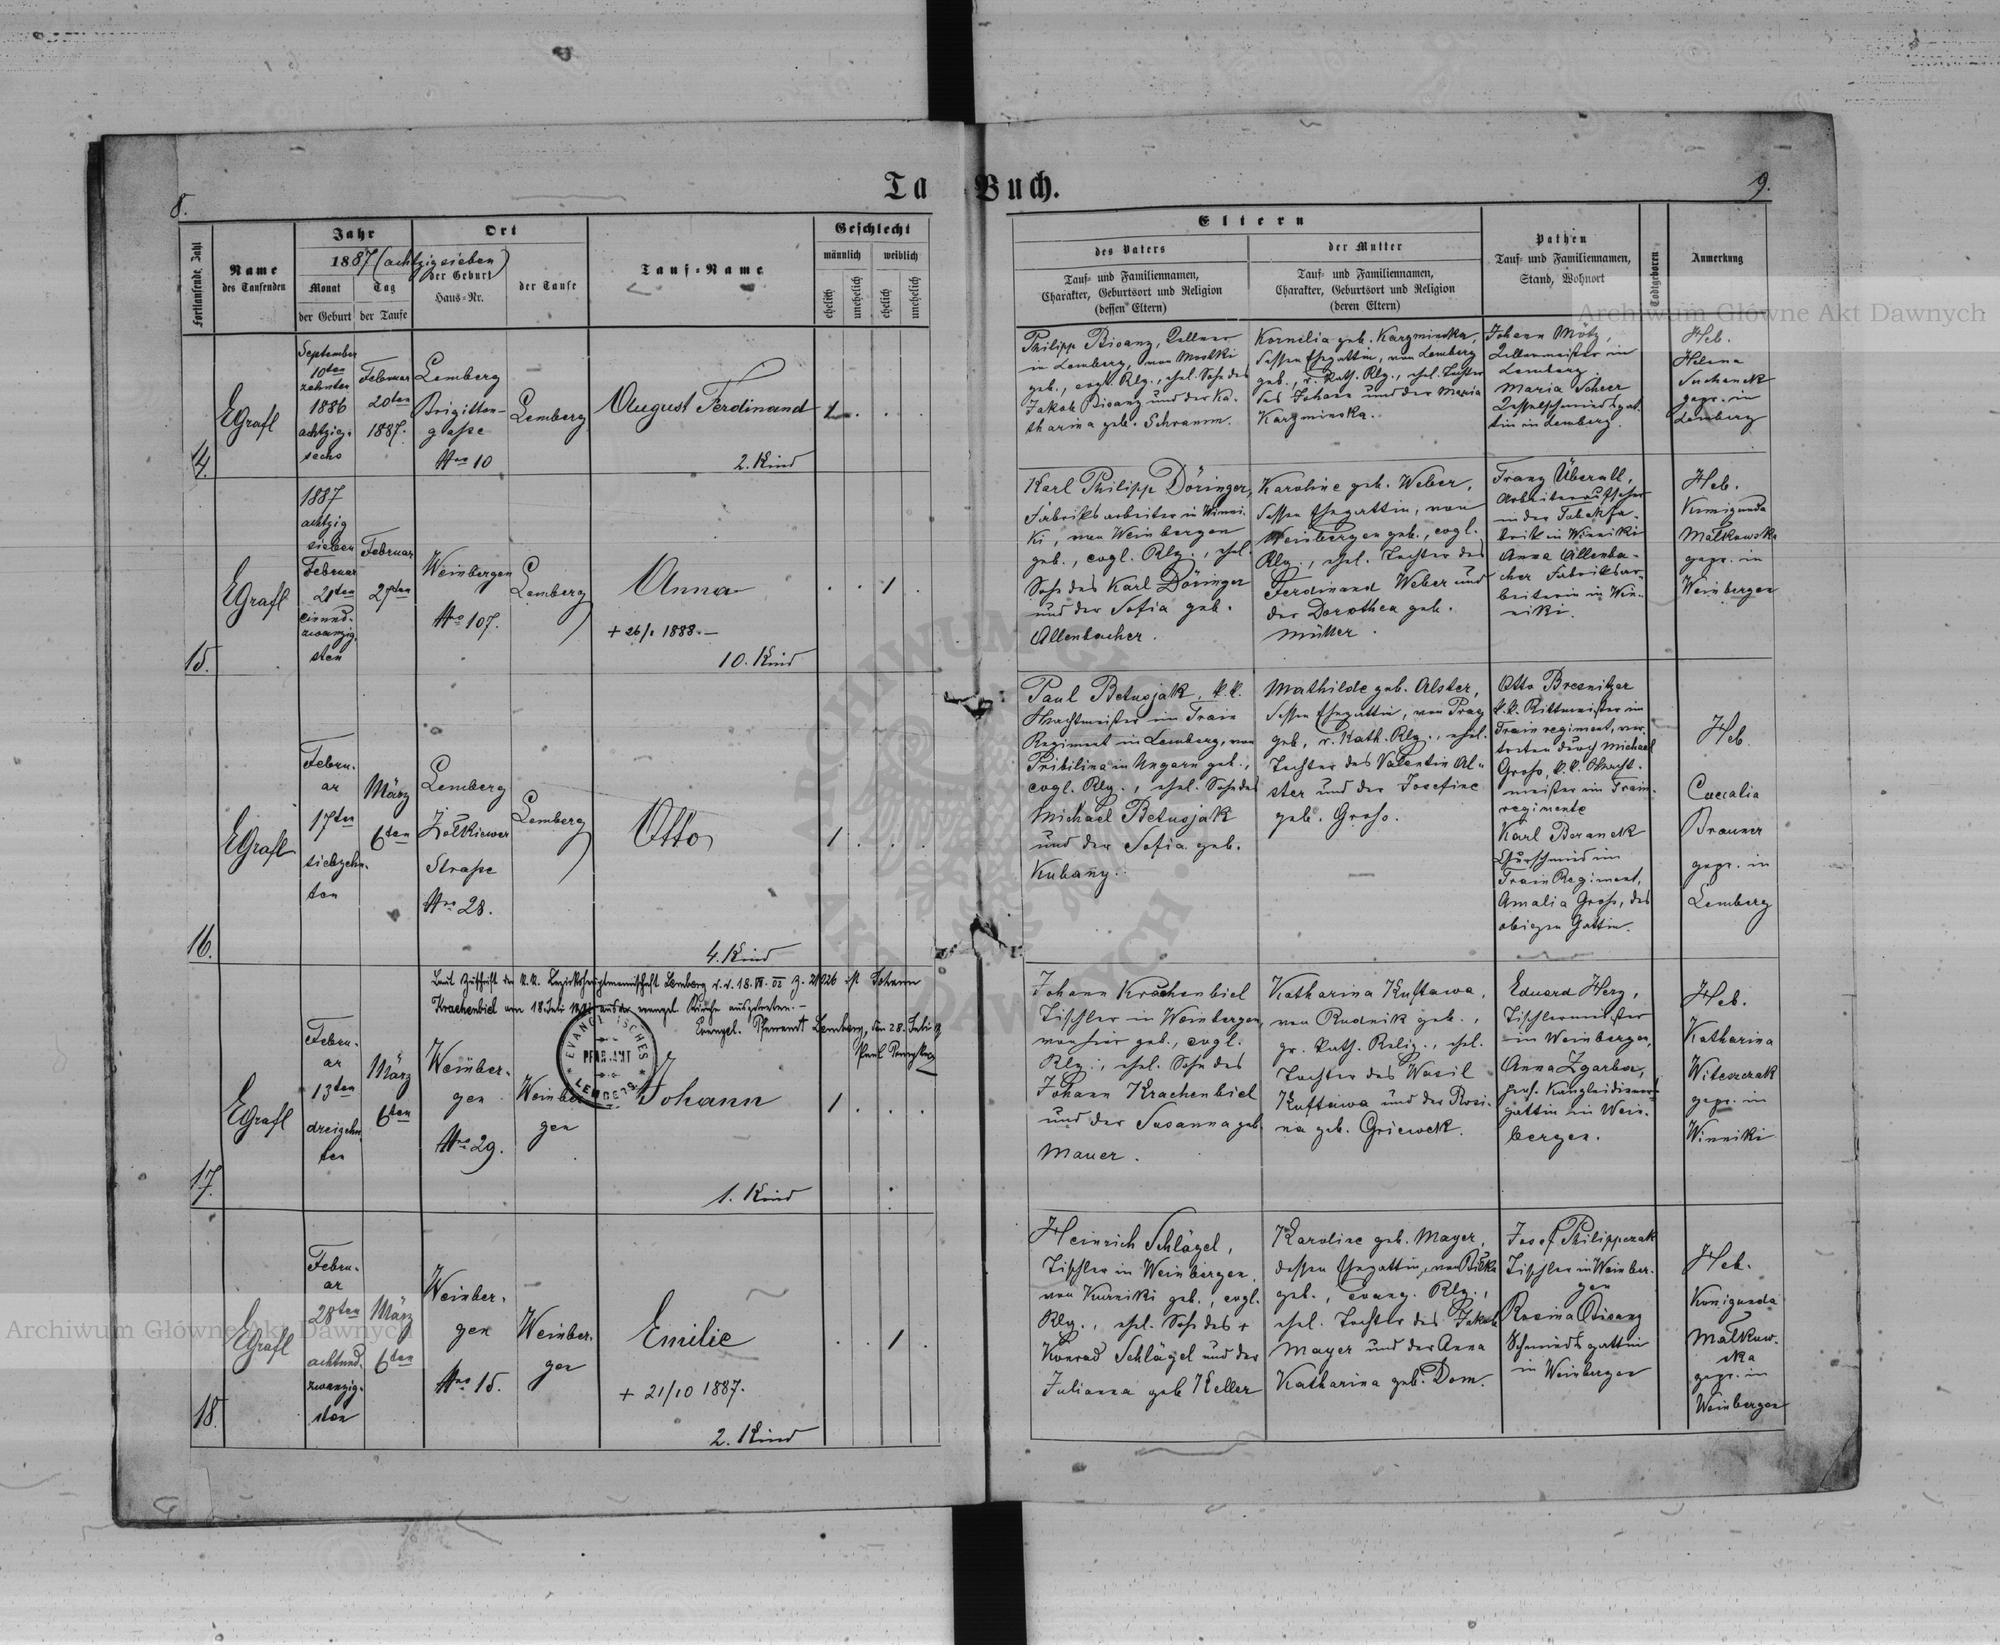 8.
Ta
Buch.
9.
Fortlaufende Zahl
Name
des Taufenden
Jahr
1887 (achtzigsieben)
Monat
Tag
der Geburt
der Taufe
Ort
der Geburt
Haus-Nr.
der Taufe
Tauf-Name
Geschlecht
männlich
weiblich
ehelich
unehelich
ehelich
unehelich
Eltern
des Vaters
Tauf- und Familiennamen,
Charakter, Geburtsort und Religion
(dessen Eltern)
der Mutter
Tauf- und Familiennamen,
Charakter, Geburtsort und Religion
(deren Eltern)
Pathen
Tauf- und Familiennamen,
Stand, Wohnort
Todtgeboren
Anmerkung
Archiwum Główne Akt Dawnych
14.
EGrafl
September
10ten
zehnten
1886
achtzig-
sechs
Februar
20ten
1887.
Lemberg
Brigitten-
gasse
Nro 10
Lemberg
August Ferdinand
2. Kind
1
Philipp Bisanz,
in Lemberg, von
geb., evgl. Rlg., ehel. Sohn des
Jakob Bisanz und der Ka-
tharina geb. Schramm.
Kornelia geb. Kazmierska,
dessen Ehegattin, von Lemberg
geb., r. Kath. Rlg., ehel. Tochter
des Johann und der Maria
Kazmierska.
Johann Mötz,
in
Lemberg.
Maria Scheer
Kesselschmiedsgat-
tin in Lemberg.
Heb.
Helena
Suchanek
gepr. in
Lemberg
15.
EGrafl
1887
achtzig
sieben
Februar
21ten
einund-
zwanzig-
sten
Februar
27ten
Weinbergen
Nro 107.
Lemberg
Anna
+ 26/. 1888.
10. Kind
1
Karl Philipp Döringer,
Fabriksarbeiter in Winni-
ki, von Weinbergen
geb., evgl. Rlg., ehel.
Sohn des Karl Döringer
und der Sofia geb.
Allenbacher.
Karoline geb. Weber,
dessen Ehegattin, von
Weinbergen geb., evgl.
Rlg., ehel. Tochter des
Ferdinand Weber und
der Dorothea geb.
Müller.
Franz Überall,
Arbeiteraufseher
in der Tabakfa-
brik in Winniki
Anna Allenba-
cher Fabriksar-
beiterin in Win-
niki.
Heb.
Kunigunda
Małkowska
gepr. in
Weinbergen
16.
EGrafl
Febru-
ar
17ten
siebzehn-
ten
März
6ten
Lemberg
Żółkiewer
Strasse
Nro 28.
Lemberg
Otto
4. Kind
1
Paul Betusjak, k.k.
Wachtmeister im Train
Regiment in Lemberg, von
Pribilina in Ungarn geb.,
evgl. Rlg., ehel. Sohn des
Michael Betusjak
und der Sofia geb.
Kubany.
Mathilde geb. Alster,
dessen Ehegattin, von Prag
geb., r. Kath. Rlg., ehel.
Tochter des Valentin Al-
ster und der Josefine
geb. Gross.
Otto Bresnitzer
k.k. Rittmeister im
Trainregiment, ver-
treten durch Michael
Gross, k.k. Wacht-
meister im Train-
regimente
Karl Beranek
Kurschmied im
Train Regiment,
Amalia Gross, des
obigen Gattin.
Heb.
Cäcalia
Brauner
gepr. in
Lemberg
Laut Zuschrift der k.k. Bezirkshauptmannschaft Lemberg v. 18. ist Johann
Krachenbiel am 18. Juli aus der evangel. Kirche ausgetreten.
Evangel. Pfarramt Lemberg, den 28. Juli
EVANGELISCHES
PFARRAMT
LEMBERG
17.
EGrafl
Febru-
ar
13ten
dreizehn
ten
März
6ten
Weinber-
gen
Nro 29.
Weinber
gen
Johann
1. Kind
1
Johann Krachenbiel
Tischler in Weinbergen,
von hier geb., evgl.
Rlg., ehel. Sohn des
Johann Krachenbiel
und der Susanna geb.
Mauer.
Katharina Kuftawa,
von Rudnik geb.,
gr. Kath. Relig., ehel.
Tochter des Wasil
Kuftawa und der Rosi-
na geb. Griewek.
Eduard Herz,
Tischlermeister
in Weinbergen,
Anna Zgarba,
gattin in Wein-
bergen.
Heb.
Katharina
Witeszczak
gepr. in
Winniki
18.
EGrafl
Febru-
ar
28ten
achtund-
zwanzig-
sten
März
6ten
Weinber-
gen
Nro 15.
Weinber-
gen
Emilie
+ 21/10 1887.
2. Kind
1
Heinrich Schlägel,
Tischler in Weinbergen,
von Kurniki geb., evgl.
Rlg., ehel. Sohn des +
Konrad Schlägel und der
Julianna geb Keller
Karoline geb. Mayer,
dessen Ehegattin, von
geb., evang. Rlg.,
ehel. Tochter des Jakob
Mayer und der Anna
Katharina geb. Dom.
Josef Philippczak
Tischler in Weinber-
gen
Rosina Bisanz
Schmiedsgattin
in Weinbergen
Heb.
Konigunda
Małkow-
ska
gepr. in
Weinbergen
Archiwum Główne Akt Dawnych
ARCHIWUM GŁÓWNE AKT DAWNYCH